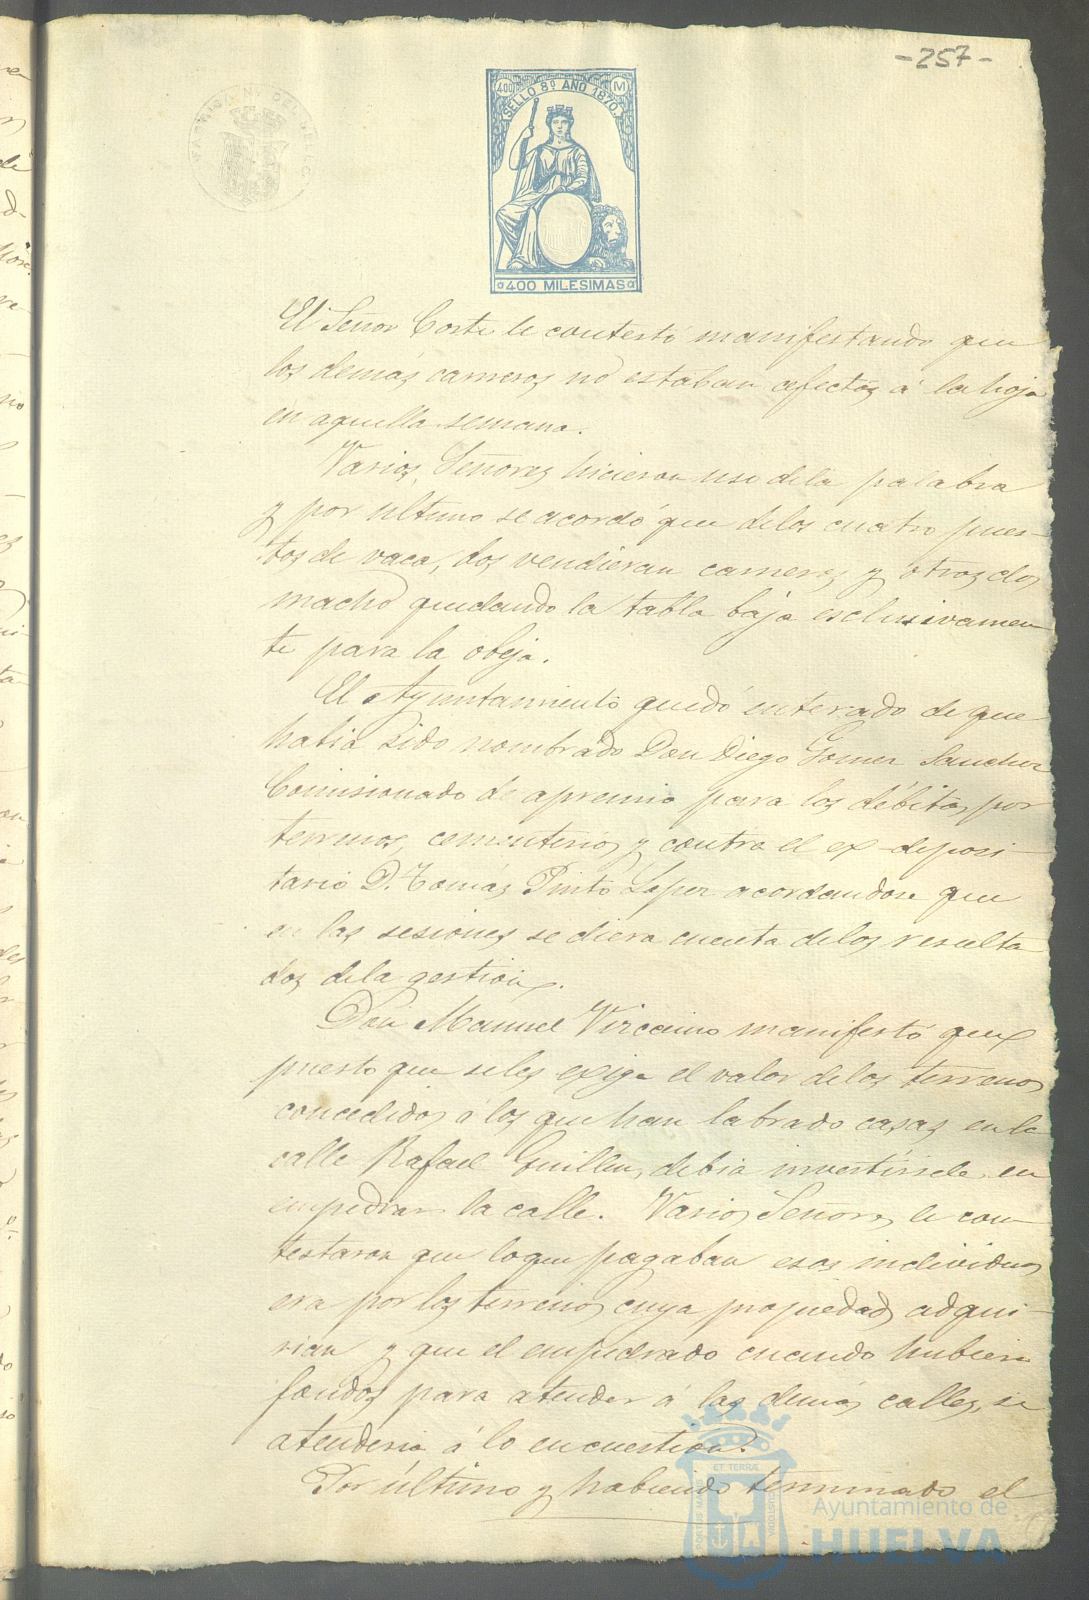 -257-
400 M
SELLO 8º AÑO 1870.
400 MILESIMAS
El Señor Corte le contestó manifestando que
los demás carneros no estaban afectos á la hoja
en aquella semana.
Varios Señores hicieron uso de la palabra
y por ultimo se acordó que de los cuatro pues-
tos de vaca, dos vendieran carneros y otros dos
macho quedando la tabla baja esclusivamen
te para la obeja.
El Ayuntamiento quedó enterado de que
habia sido nombrado Don Diego Gomez Sanchez
Comisionado de apremio para los débitos por
terrenos, cementerios y contra el ex-deposi
tario D. Tomás Pinto Lopez acordandose que
en las sesiones se diera cuenta de los resulta
dos de la gestion.
Don Manuel Vizcaino manifestó que
puesto que se les exige el valor de los terrenos
concedidos á los que han labrado casas en la
calle Rafael Guillen, debia invertirsele en
empedrar la calle. Varios Señores le con
testaron que lo que pagaban esos individuos
era por los terrenos cuya propiedad adqui-
rian y que el empedrado cuando hubiera
fondos para atender á las demás calles, se
atenderia á lo en cuestion.
Por último y habiendo terminado el
Ayuntamiento de
HUELVA